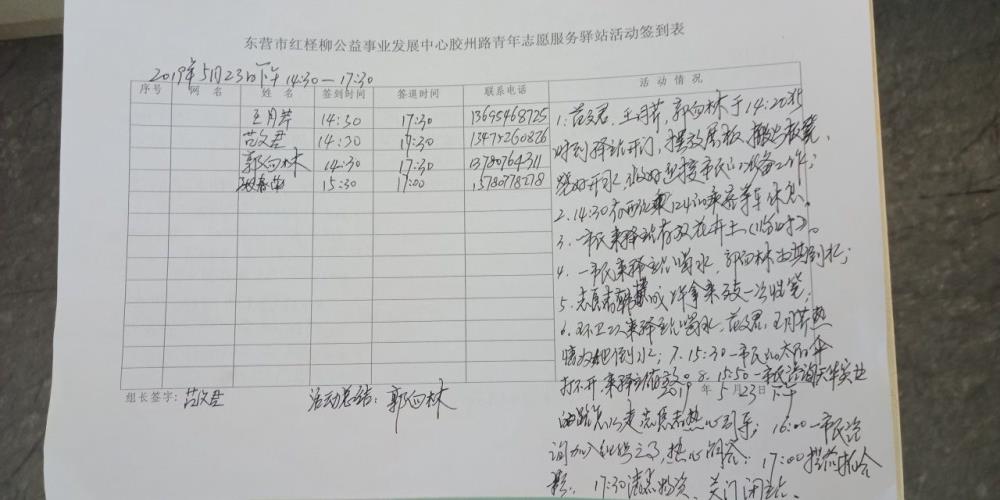 东营市红柽柳公益事业发展中心胶州路青年志愿服务驿站活动签到表
2019年5月23日下午14:30—17:30
序号 网名 姓名 签到时间 签退时间 联系电话 活动情况
王月芹 14:30 17:30 13695468725
范文君 14:30 17:30
郭向林 14:30 17:30
15:30 17:00
1.范文君,王月芹,郭向林于14:20准
时到驿站开门,摆放展板,搬出板凳,
烧好开水,做好迎接市民的准备工作;
2.14:30有两位乘124的乘客等车休息。
3.一市民来驿站存放花卉土(临时)。
4.一市民来驿站喝水,郭向林为其倒水;
5.志愿者 拿来 一次性
6.环卫工来驿站喝水,范文君,王月芹热
情为她倒水;7.15:30一市民的太阳伞
打不开,来驿站 8.15:50一市民咨询大华实业
的路怎么走志愿者热心引导;16:00一市民咨
询加入 热心 17:00提前拍合
影,17:30清点物资,关门闭站。
2019年5月23日下午
组长签字:范文君 活动总结:郭向林